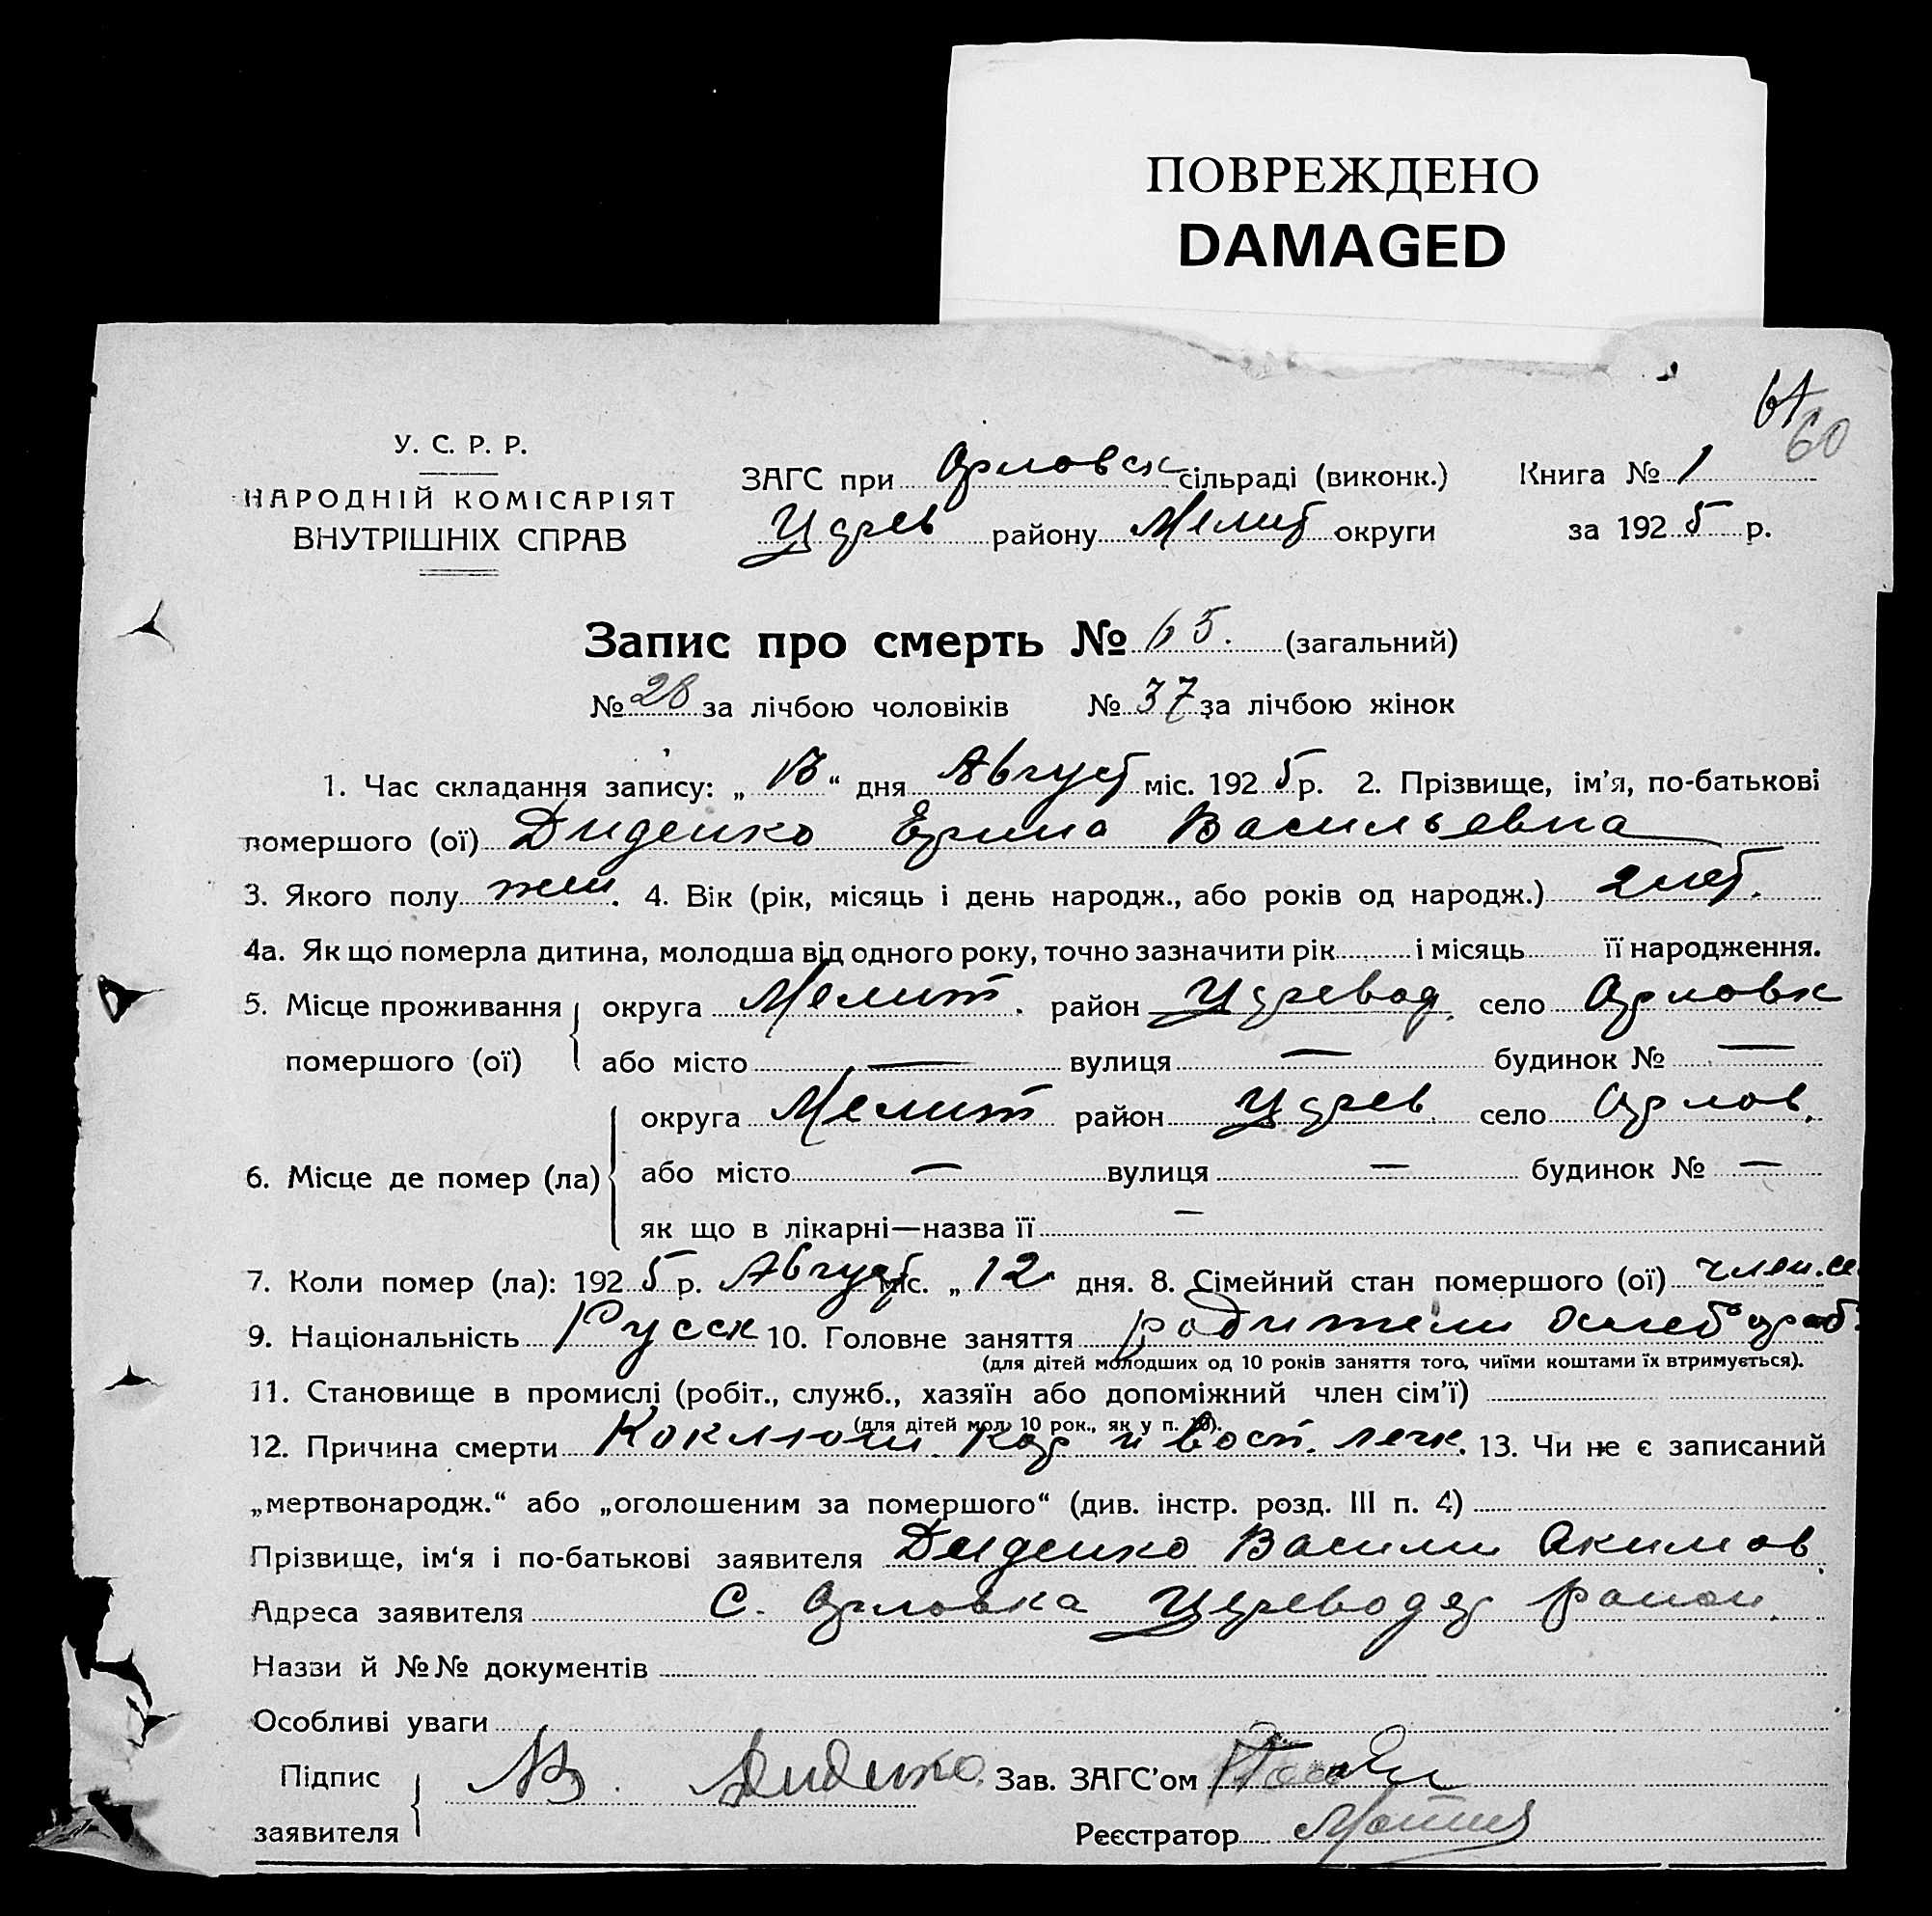 ПОВРЕЖДЕНО
DAMAGED
61
60
У. С. Р. Р.
НАРОДНІЙ КОМІСАРІЯТ
ВНУТРІШНІХ СПРАВ
ЗАГС при Орловск сільраді (виконк.) Книга № 1
району Мелит округи за 1925 р.
Запис про смерть № 65. (загальний)
№ 28 за лічбою чоловіків № 37 за лічбою жінок
1. Час складання запису: „13“ дня Август міс. 1925 р. 2. Прізвище, ім’я, по-батькові
помершого (ої) Диденко Васильевна
3. Якого полу жен. 4. Вік (рік, місяць і день народж., або років од народж.) 2 лет.
4а. Як що померла дитина, молодша від одного року, точно зазначити рік і місяць її народження.
5. Місце проживання округа Мелит. район село Орловк
помершого (ої) або місто — вулиця — будинок № —
округа Мелит район село Орлов.
6. Місце де помер (ла) або місто — вулиця — будинок № —
як що в лікарні—назва її —
7. Коли помер (ла): 1925 р. Август міс. „12 дня. 8. Сімейний стан помершого (ої) член. се
9. Національність Русск 10. Головне заняття родители
(для дітей молодших од 10 років заняття того, чиїми коштами їх втримується).
11. Становище в промислі (робіт., служб., хазяїн або допоміжний член сім’ї)
(для дітей мол. 10 рок., як у п. 10).
12. Причина смерти Коклюш. и восп. легк. 13. Чи не є записаний
„мертвонародж.“ або „оголошеним за помершого“ (див. інстр. розд. III п. 4)
Прізвище, ім‘я і по-батькові заявителя Диденко Васили Акимов
Адреса заявителя С. Орловка район.
Наззи й №№ документів
Особливі уваги
Підпис В. Диденко. Зав. ЗАГС’ом
заявителя Реєстратор